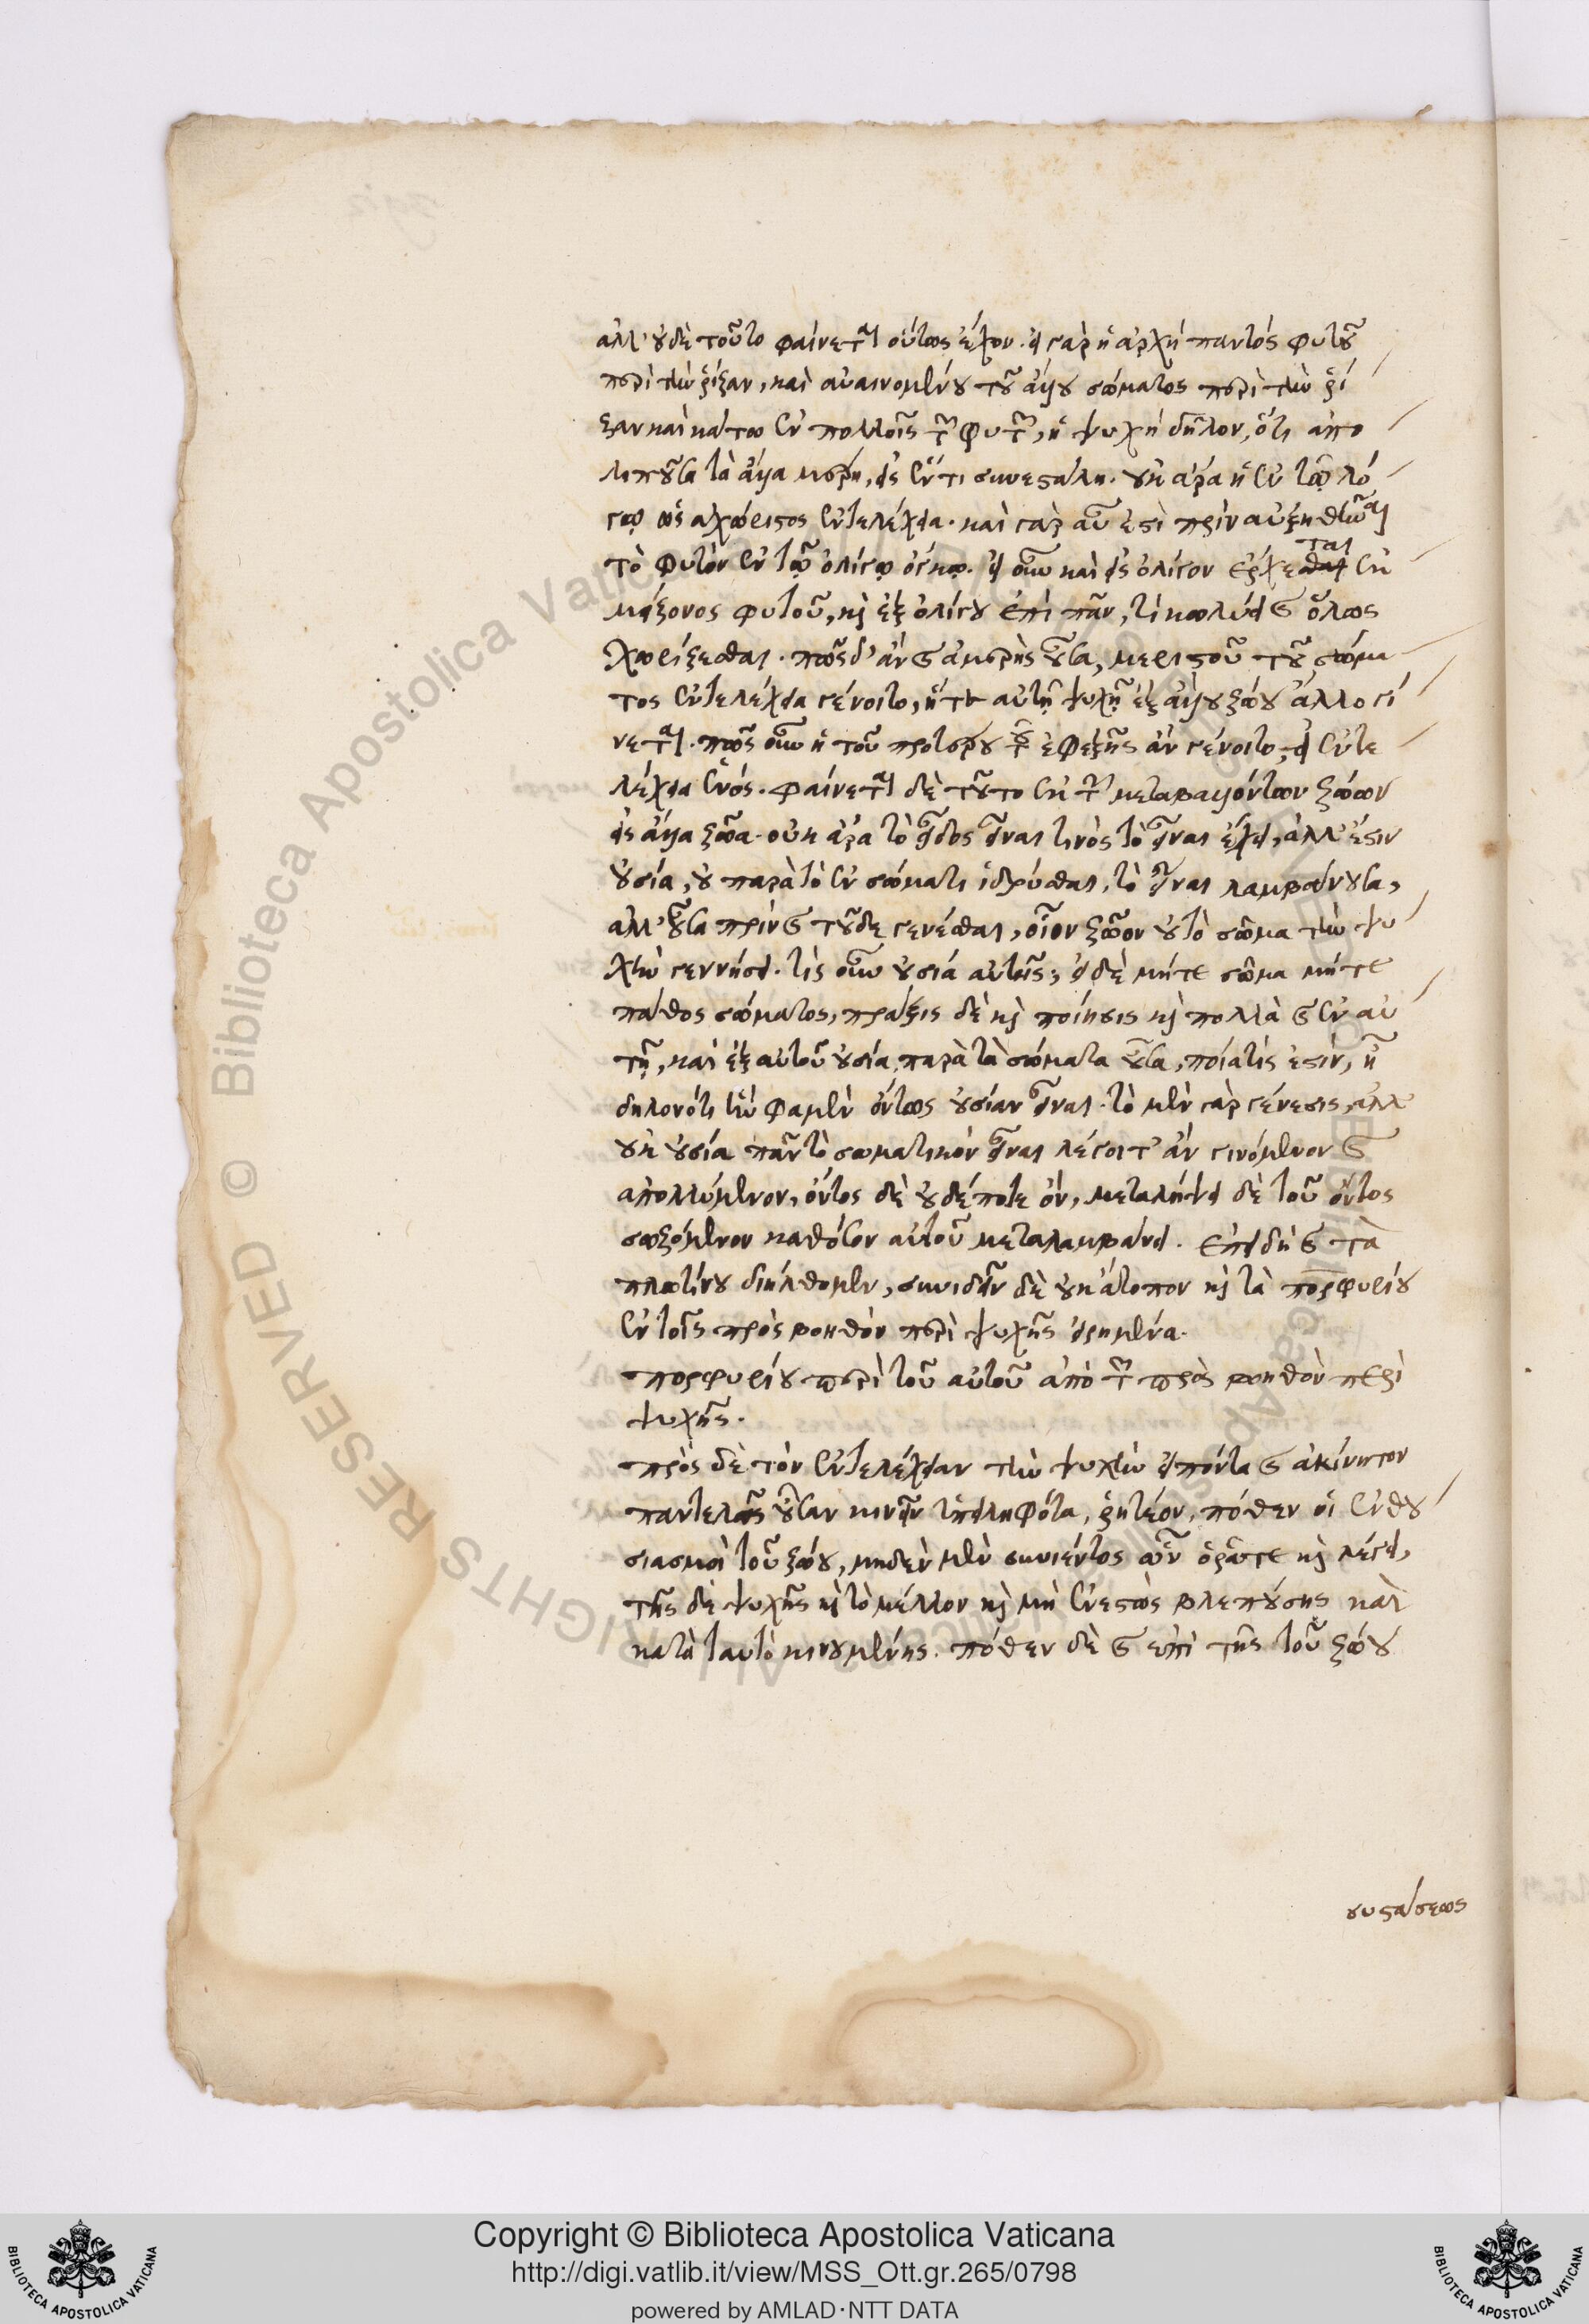 ἀλλ' οὐδὲ τοῦτο φαίνεται οὕτως ἔχον. εἰ γὰρ ἡ ἀρχὴ παντὸς φυτοῦ
περὶ τὴν ῥίζαν, καὶ αὐαινομένου τοῦ ἄλλου σώματος περὶ τὴν ῥί
ζαν καὶ κάτω ἐν πολλοῖς τῶν φυτῶν, ἡ ψυχὴ δῆλον, ὅτι ἀπο
λιποῦσα τὰ ἄλλα μέρη, εἰς ἕν τι συνεστάλη. οὐκ ἄρα ἦ ἐν τῷ λό
γῳ ὡς ἀχώριστος ἐντελέχεια. καὶ γὰρ αὖ ἐστὶ πρὶν αὐξηθῆναι
τὸ φυτὸν ἐν τῷ ὀλίγῳ ὄγκῳ. εἰ οὖν καὶ εἰς ὀλίγον ἔρχεται ἐκ
μείζονος φυτοῦ, καὶ ἐξ ὀλίγου ἐπὶ πᾶν, τί κωλύει καὶ ὅλως
χωρίζεσθαι. πῶς δ' ἂν καὶ ἀμερὴς οὖσα, μεριστοῦ τοῦ σώμα
τος ἐντελέχεια γένοιτο, ἥτε αὐτὴ ψυχὴ ἐξ ἄλλου ζώου ἄλλο γί
νεται. πῶς οὖν ἡ τοῦ προτέρου τοῦ ἐφεξῆς ἂν γένοιτο, εἰ ἐντε
λέχεια ἑνός. φαίνεται δὲ τοῦτο ἐκ τῶν μεταβαλλόντων ζώων
εἰς ἄλλα ζῶα. οὐκ ἄρα τὸ εἶδος εἶναι τινὸς τὸ εἶναι ἔχει, ἀλλ' ἔστιν
οὐσία, οὐ παρὰ τὸ ἐν σώματι ἱδρύσθαι, τὸ εἶναι λαμβάνουσα,
ἀλλ' οὖσα πρὶν καὶ τοῦδε γενέσθαι, οἷον ζῶον οὐ τὸ σῶμα τὴν ψυ
χὴν γεννήσει. τίς οὖν οὐσία αὐτῆς; εἰ δὲ μήτε σῶμα μήτε
πάθος σώματος, πρᾶξις δὲ καὶ ποίησις καὶ πολλὰ καὶ ἐν αὐ
τῇ, καὶ ἐξ αὐτοῦ οὐσία παρὰ τὰ σώματα οὖσα, ποία τίς ἐστίν, ἢ
δηλονότι ἣν φαμὲν ὄντως οὐσίαν εἶναι. τὸ μὲν γὰρ γένεσις, ἀλλ'
οὐκ οὐσία πᾶν τὸ σωματικὸν εἶναι λέγοιτ' ἂν γινόμενον καὶ
ἀπολλύμενον, ὄντος δὲ οὐδέποτε ὄν, μεταλήψει δὲ τοῦ ὄντος
σωζόμενον καθόσον αὐτοῦ μεταλαμβάνει. ἐπειδὴ καὶ τὰ
πλωτίνου διήλθομεν, συνιδεῖν δὲ οὐκ ἄτοπον καὶ τὰ πορφυρίου
ἐν τοῖς πρὸς βοηθὸν περὶ ψυχῆς εἰρημένα.
πορφυρίου περὶ τοῦ αὐτοῦ ἀπὸ τῶν πρὸς βοηθὸν περὶ
ψυχῆς.
πρὸς δὲ τὸν ἐντελέχειαν τὴν ψυχὴν εἰπόντα καὶ ἀκίνητον
παντελῶς οὖσαν κινεῖν ὑπειληφότα, ῥητέον, πόθεν οἱ ἐνθου
σιασμοὶ τοῦ ζώου, μηδὲν μὲν συνιέντος ὧν ὁρᾶ τε καὶ λέγει,
τῆς δὲ ψυχῆς καὶ τὸ μέλλον καὶ μὴ ἐνεστὼς βλεπούσης καὶ
κατὰ ταυτὸ κινουμένης. πόθεν δὲ καὶ ἐπὶ τῆς τοῦ ζώου
συστάσεως
Copyright © Biblioteca Apostolica Vaticana
http://digi.vatlib.it/view/MSS_Ott.gr.265/0798
powered by AMLAD·NTT DATA